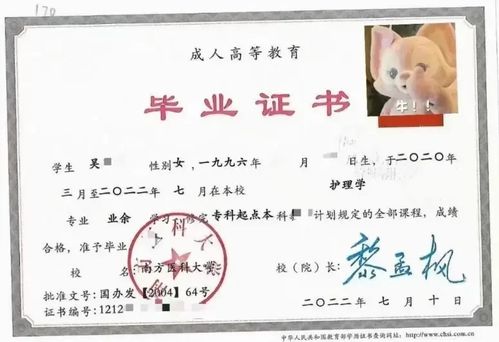 170
成人高等教育
毕业证书
牛！！
学生 吴 性别 女，一九九六年 月 日生，于二〇二〇年
三月至二〇二二年 七 月在本校 护理学
专业 业余 学习，修完 专科起点本科 计划规定的全部课程，成绩
合格，准予毕业
校 名：南方医科大学 校（院）长：黎孟枫
批准文号：国办发【2004】64号
证书编号：1212
二〇二二年 七 月 十 日
中华人民共和国教育部学历证书查询网址：http://www.chsi.com.cn